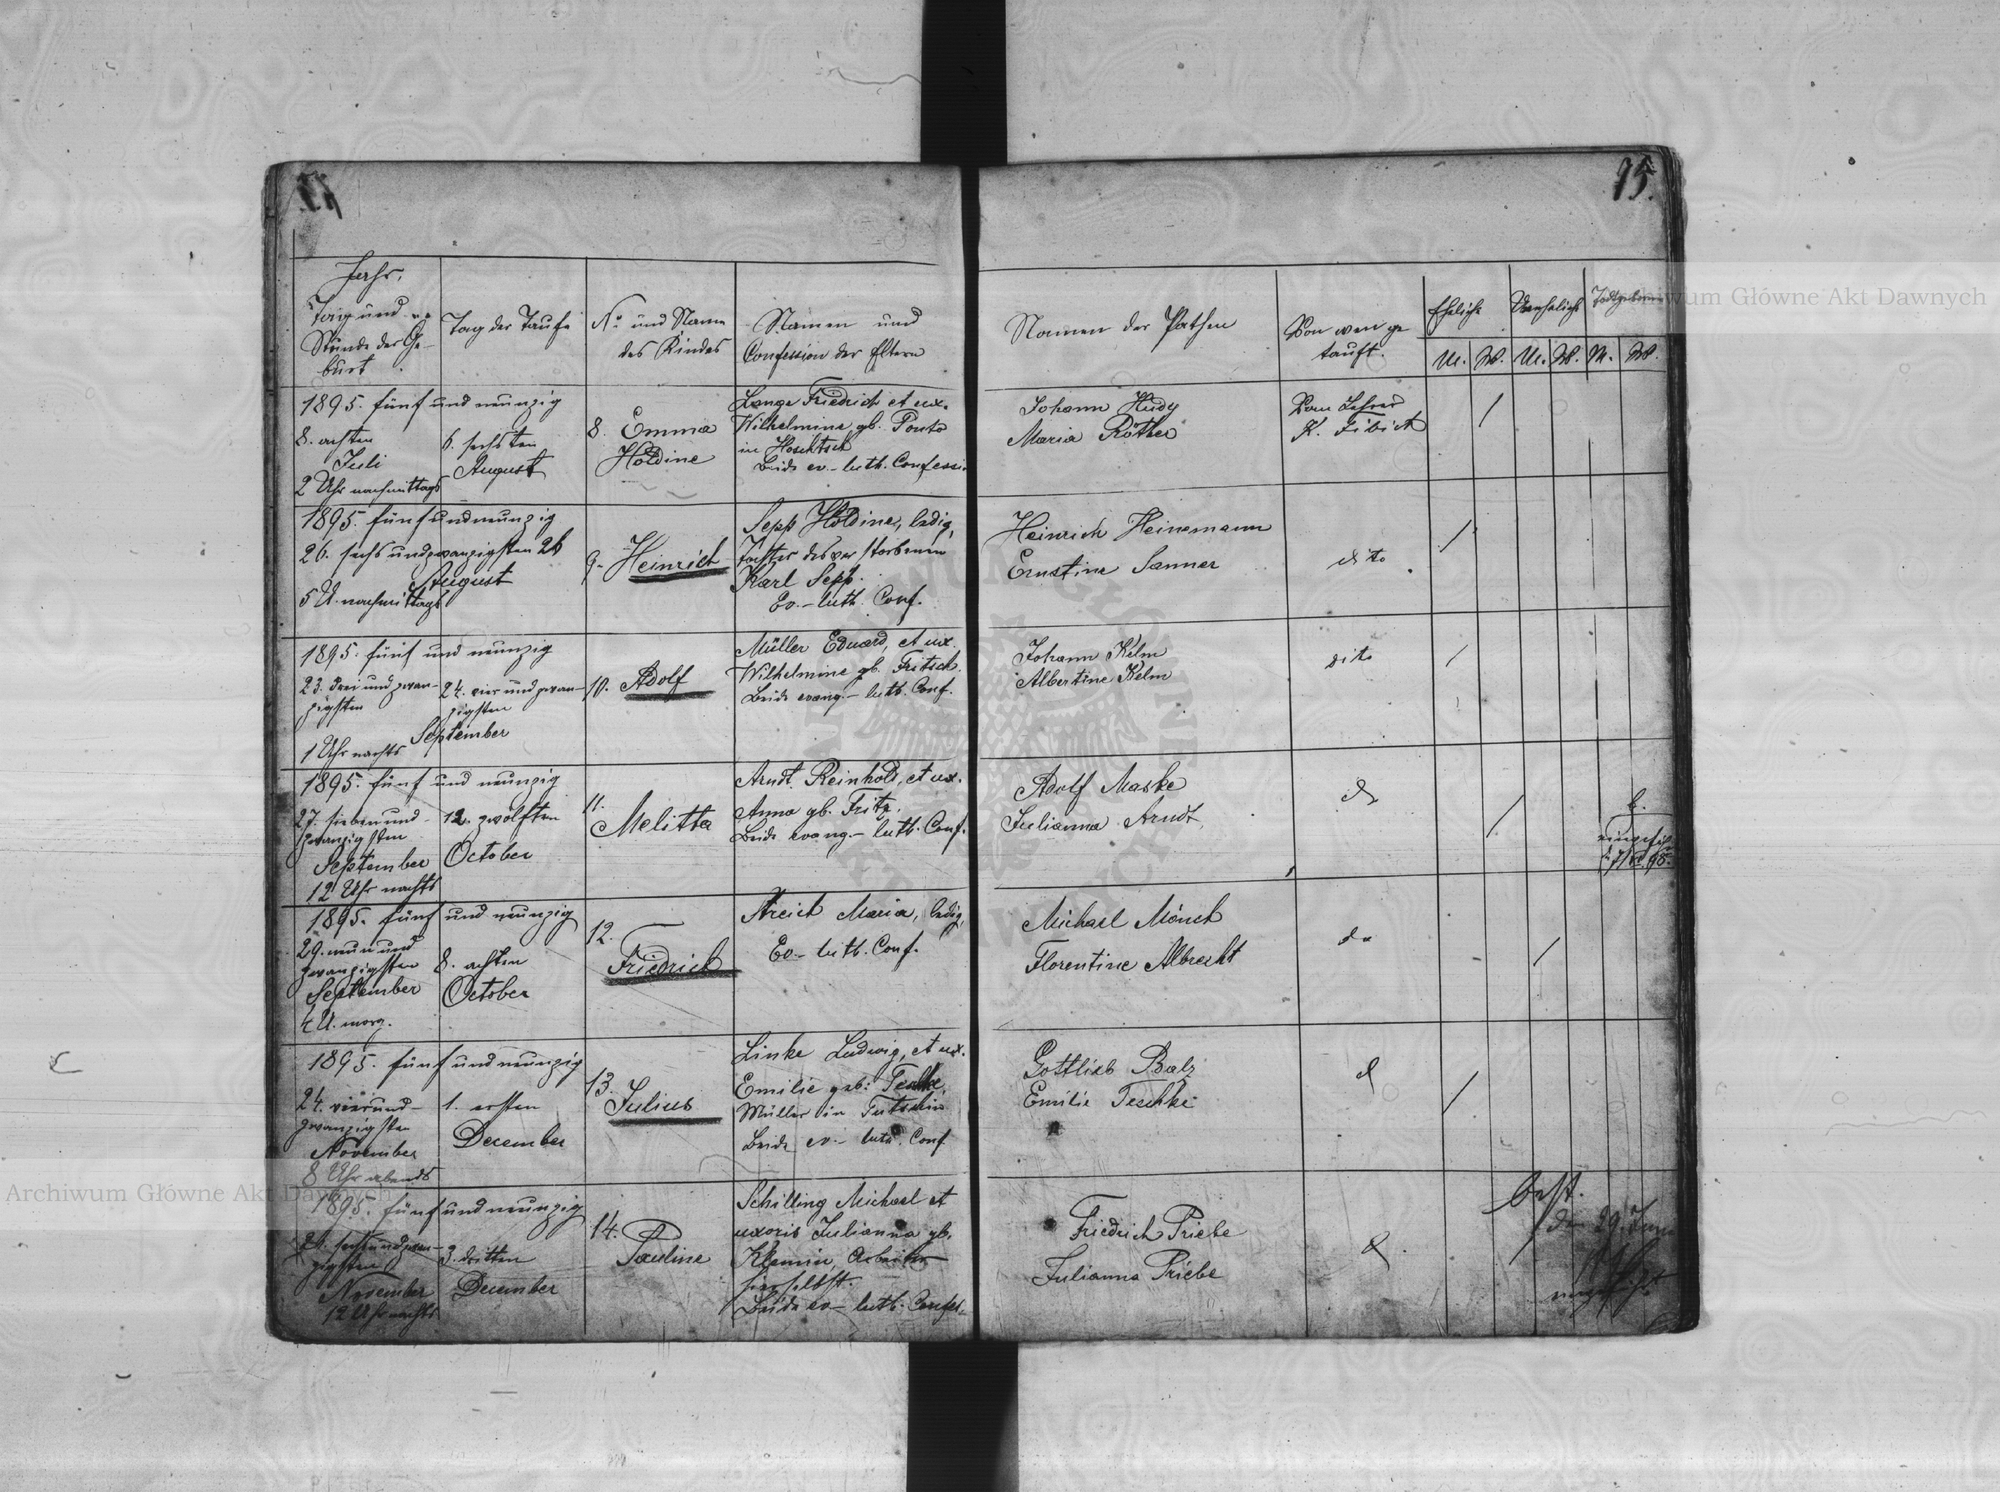 15.
Jahr,
Tag und
Stunde der Ge-
burt
Tag der Taufe
No und Name
des Kindes
Namen und
Confession der Eltern
Namen der Pathen
Von wem ge
tauft.
Ehelich
Unehelich
Todtgeboren
M. W. M. W. M. W.
1895. fünf und neunzig
8. achten
Juli
2 Uhr nachmittags
6. sechsten
August
8. Emma
Holdine
Lange Friedrich et ux.
Wilhelmine gb. Ponto
in Hoschtsch
Beide ev.-luth. Confessi
Johann Hudy
Maria Rother
Vom Lehrer
K. Fibich
1895. fünf und neunzig
26. sechs und zwanzigsten 26
August
5 U. nachmittags
9. Heinrich
Sepp Holdine, ledig,
Tochter des verstorbenen
Karl Sepp.
Ev.-luth. Conf.
Heinrich Heinemann
Ernstine Sanner
dito
1895. fünf und neunzig
23. drei und zwan-
zigsten
24. vier und zwan-
zigsten
September
1 Uhr nachts
10. Adolf
Müller Eduard, et ux.
Wilhelmine gb. Fritsch.
Beide evang.-luth. Conf.
Johann Kelm
Albertine Kelm
dito
1895. fünf und neunzig
27. sieben und
zwanzigsten
September
12 Uhr nachts
12. zwölften
October
11.
Melitta
Arndt Reinhold, et ux.
Anna gb. Fritz.
Beide evang.-luth. Conf.
Adolf Maske
Julianna Arndt
do
1895. fünf und neunzig
29. neun und
zwanzigsten
September
4 U. morg.
8. achten
October
12.
Friedrich
Streich Maria, ledig,
Ev-luth. Conf.
Michael Mönch
Florentine Albrecht
do
1895. fünf und neunzig
24. vier und-
zwanzigsten
November
8 Uhr abends
1. ersten
December
13.
Julius
Linke Ludwig, et ux.
Emilie geb: Teschke,
Müller in Tutschin
Beide ev-luth. Conf
Gottlieb Balz
Emilie Teschke
d
1895. fünf und neunzig
zigsten
November
12 Uhr nachts
3. dritten
December
14.
Pauline
Schilling Michael et
uxoris Julianna gb.
Klemin, Arbeiter
hierselbst.
Beide ev-luth. Confes-
Friedrich Priebe
Julianna Priebe
d
best.
Archiwum Główne Akt Dawnych
Archiwum Główne Akt Dawnych